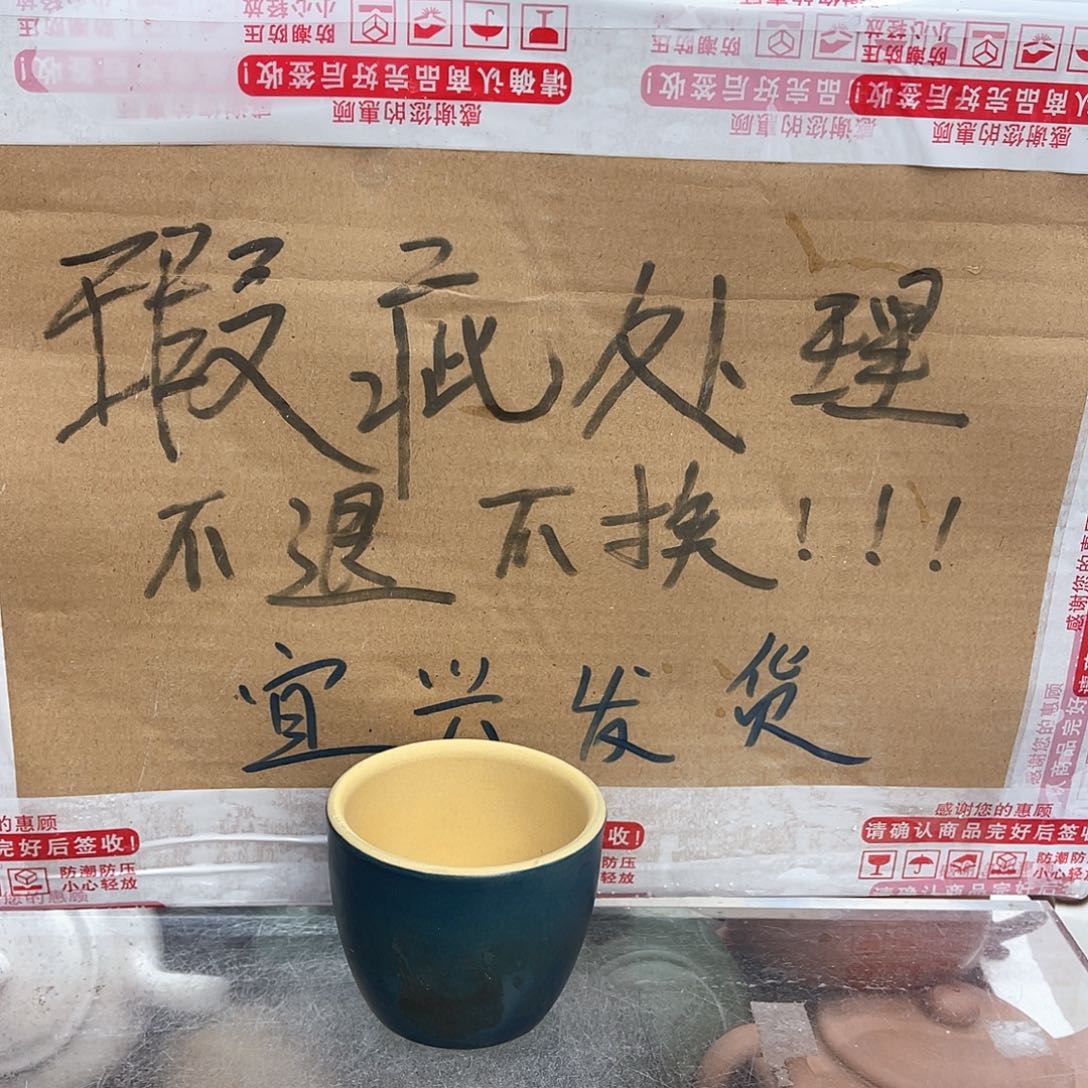 小心轻放
防潮防压
请确认商品完好后签收!
感谢您的惠顾
小心轻放
防潮防压
请确认商品完好后签收!
感谢您的惠顾
瑕疵处理
不退不换!!!
宜兴发货
的惠顾
完好后签收!
防潮防压
小心轻放
收!
防潮防压
小心轻放
感谢您的惠顾
请确认商品完好后签收!
防潮防压
小心轻放